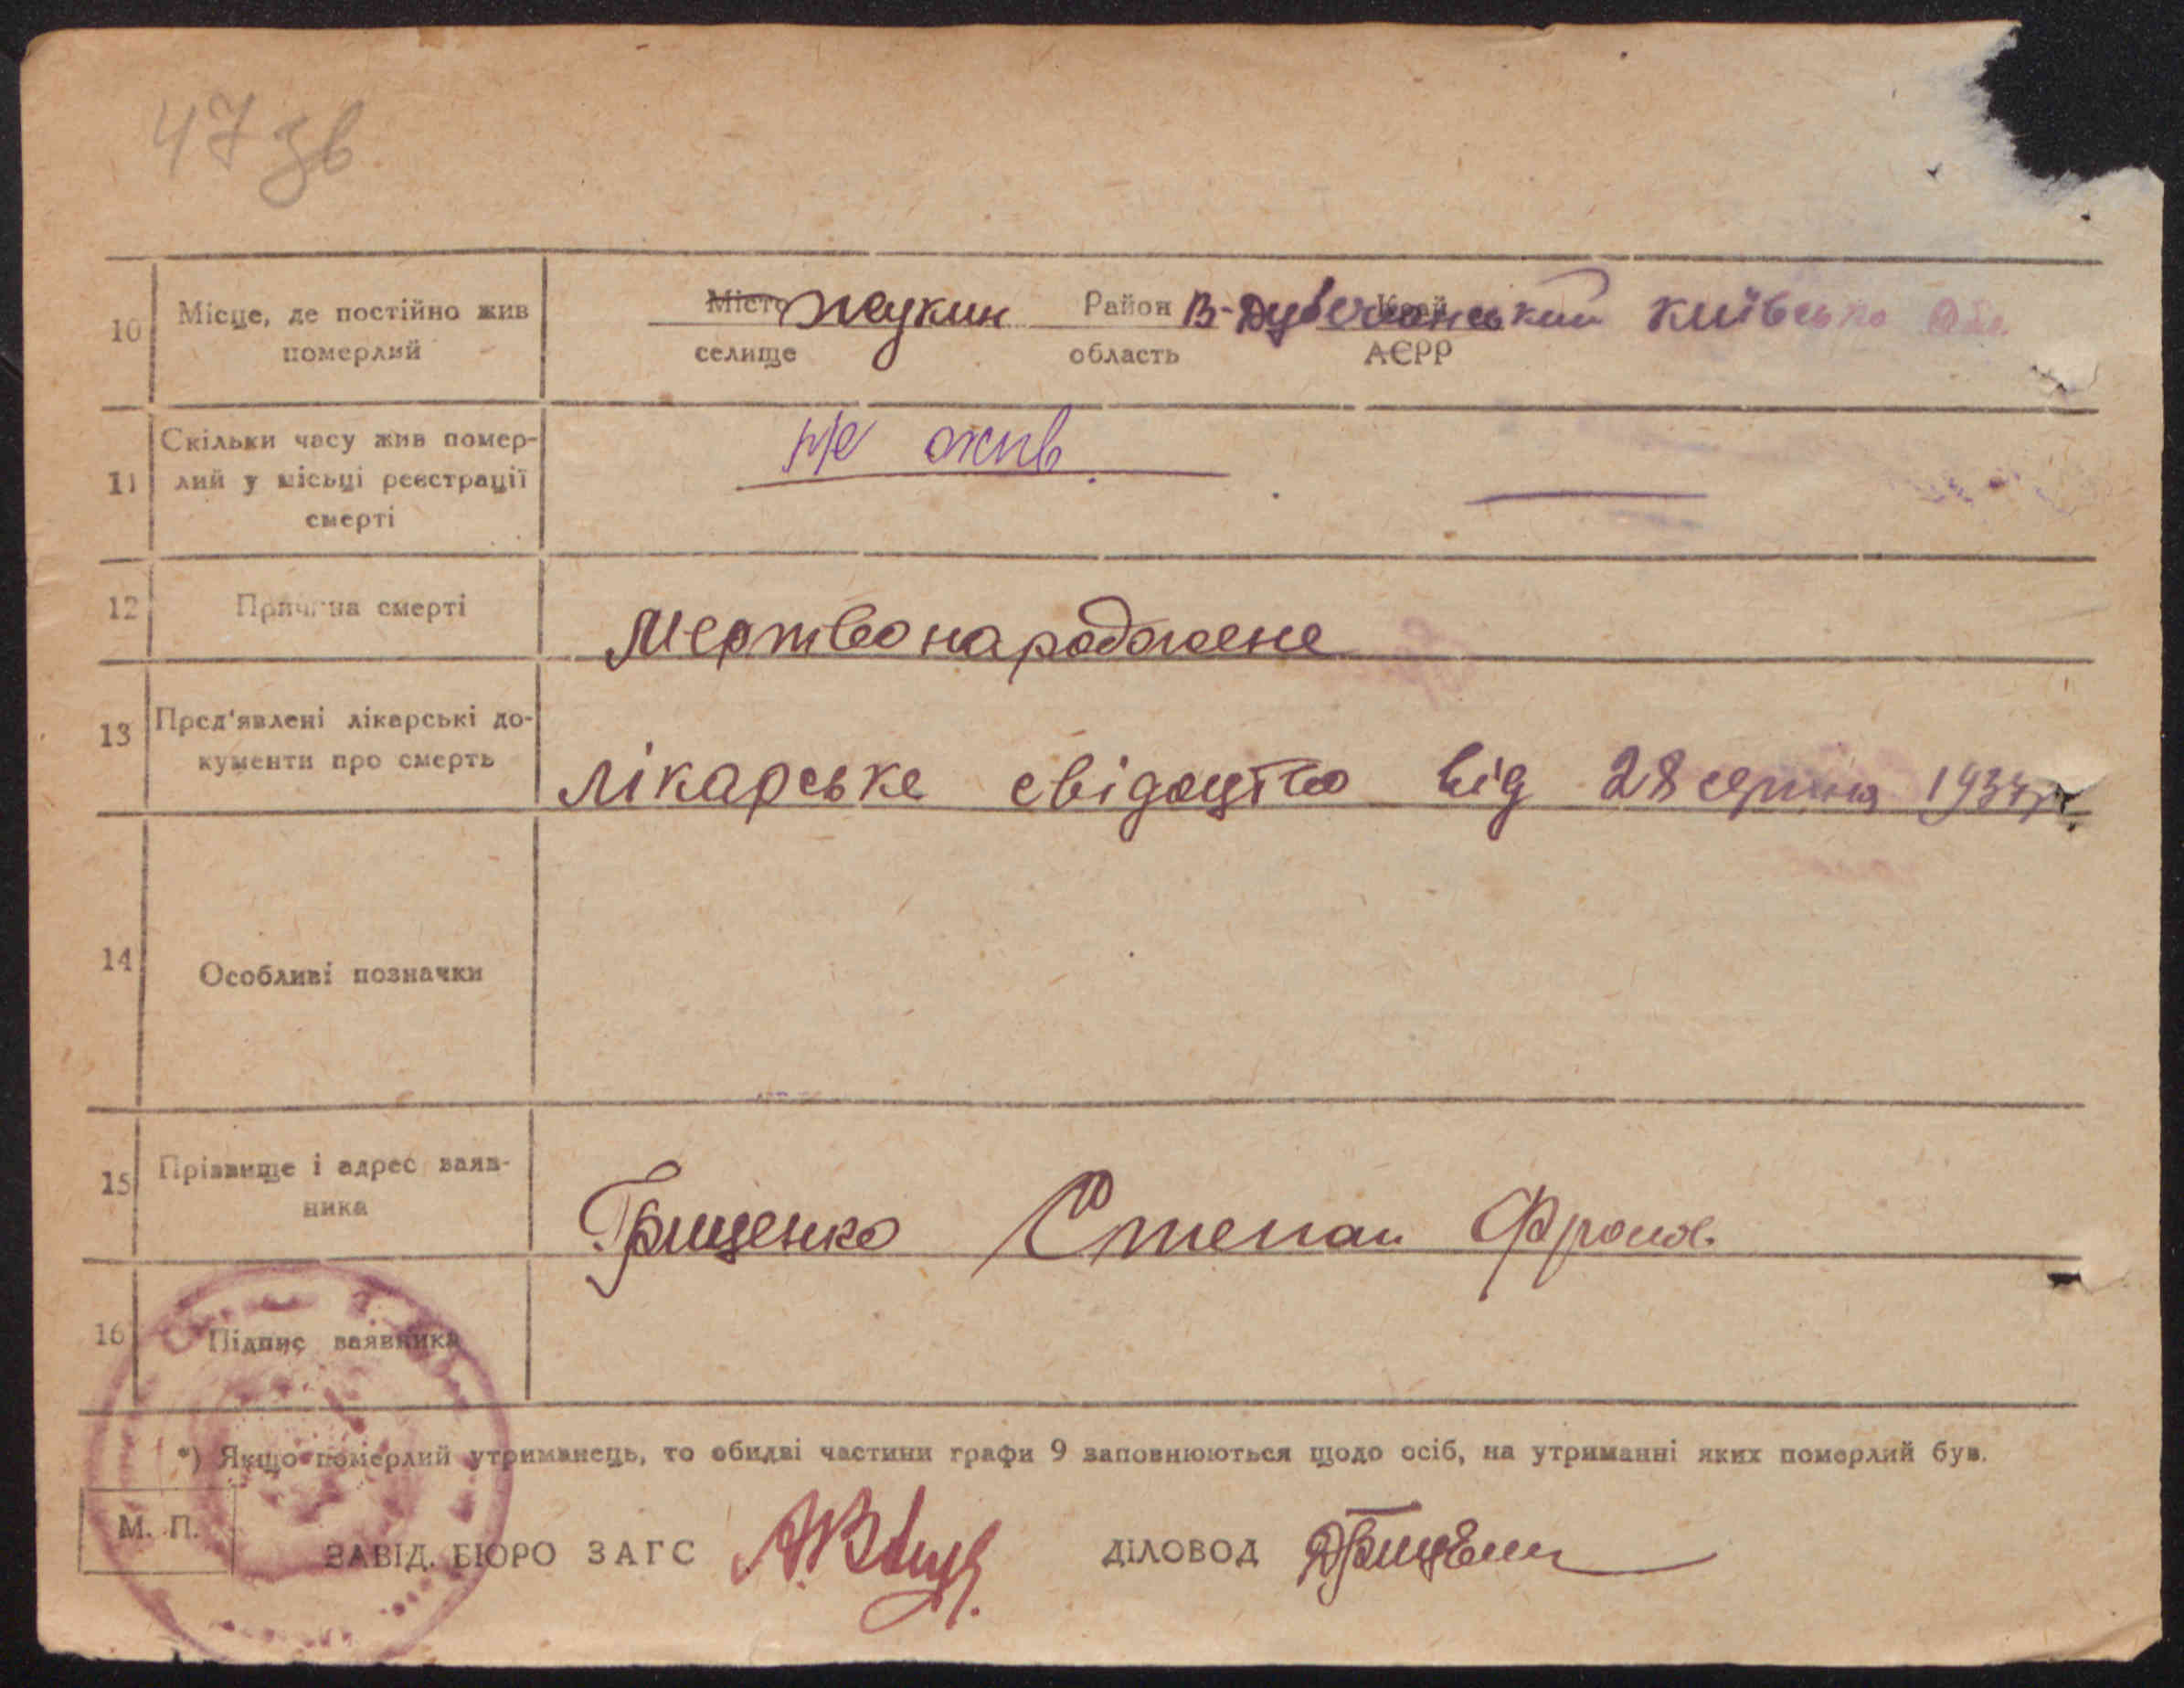 47 зв
10 Місце, де постійно жив померлий
Місто Жукин Район В-Дубечанський Край Київсько Обл.
селище область АСРР
11 Скільки часу жив помер-
лий у місьці реєстрації
смерті
не жив
12 Причина смерті
Мертвонароджене
13 Пред'явлені лікарські до-
кументи про смерть
лікарське свідоцтво від 28 серпня 1934р.
14 Особливі позначки
15 Прізвище і адрес заяв-
ника
Грищенко Степан
16 Підпис заявника
*) Якщо померлий утриманець, то обидві частини графи 9 заповнюються щодо осіб, на утриманні яких померлий був.
М. П.
ЗАВІД. БЮРО ЗАГС ДІЛОВОД